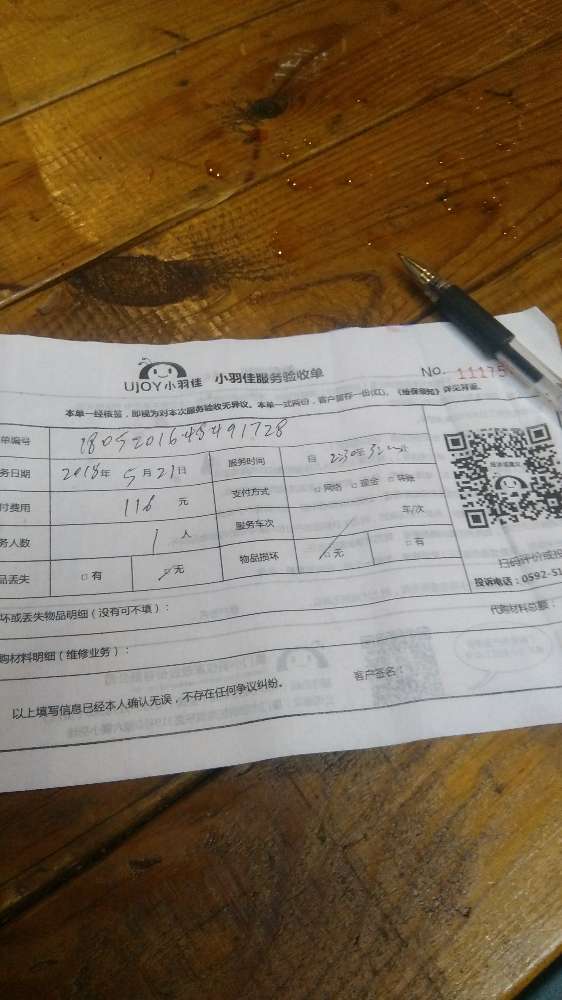 UjOY小羽佳 小羽佳服务验收单 No. 11175
本单一经核签，即视为对本次服务验收无异议。本单一式两份，客户留存一份(红)。《维保须知》详见背面。
单编号 1805201645491728
务日期 2018年 5月21日 服务时间 自 2:30至
付费用 116 元 支付方式 □网络 □现金 □转账
务人数 1 人 服务车次 车/次
品丢失 □有 □无 物品损坏 □无 □有
扫码评价或投
投诉电话：0592-51
坏或丢失物品明细（没有可不填）：
代购材料总额：
购材料明细（维修业务）：
以上填写信息已经本人确认无误，不存在任何争议纠纷。 客户签名：